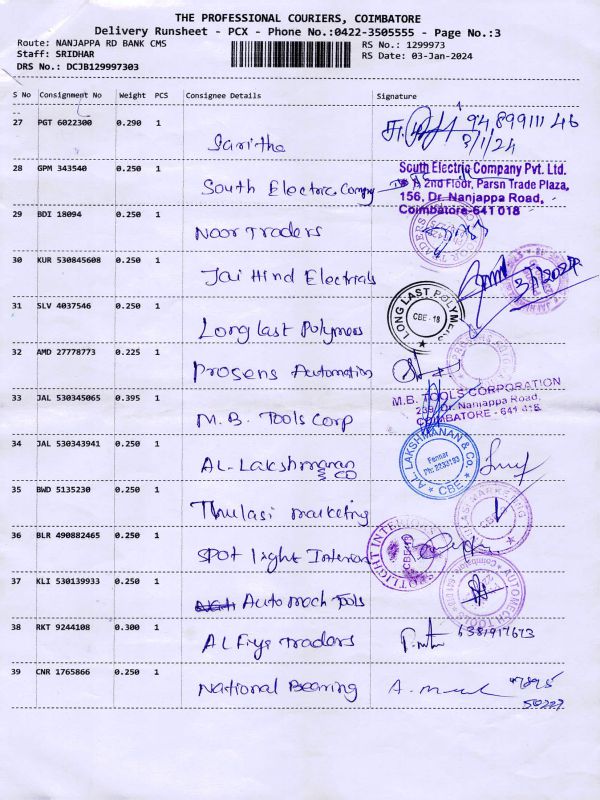 THE PROFESSIONAL COURIERS, COIMBATORE
Delivery Runsheet - PCX - Phone No.:0422-3505555 - Page No.:3
Route: NANJAPPA RD BANK CMS
Staff: SRIDHAR
DRS No.: DCJB129997303
RS No.: 1299973
RS Date: 03-Jan-2024
S No Consignment No Weight PCS Consignee Details Signature
--
27 PGT 6022300 0.290 1
94,8999111 46
3/1/24
28 GPM 343540 0.250 1
South Electric Company
South Electric Company Pvt. Ltd.
2nd Floor, Parsn Trade Plaza,
156, Dr. Nanjappa Road,
Coimbatore-641 018
29 BDI 18094 0.250 1
Noor Traders
30 KUR 530845608 0.250 1
Jai Hind Electricals
31 SLV 4037546 0.250 1
Long last Polymers
LONG LAST POLYMERS
CBE - 18
32 AMD 27778773 0.225 1
Prosens Automation
33 JAL 530345065 0.395 1
M.B. Tools Corp
M.B. TOOLS CORPORATION
Dr. Nanjappa Road,
COIMBATORE - 641 018
34 JAL 530343941 0.250 1
AL-Lakshmanan
& CO
AL. LAKSHMANAN & Co.
CBE
35 BWD 5135230 0.250 1
Thulasi marketing
36 BLR 490882465 0.250 1
Spot light Interior
37 KLI 530139933 0.250 1
Automech Tools
38 RKT 9244108 0.300 1
Traders
6381917673
39 CNR 1765866 0.250 1
National Bearing